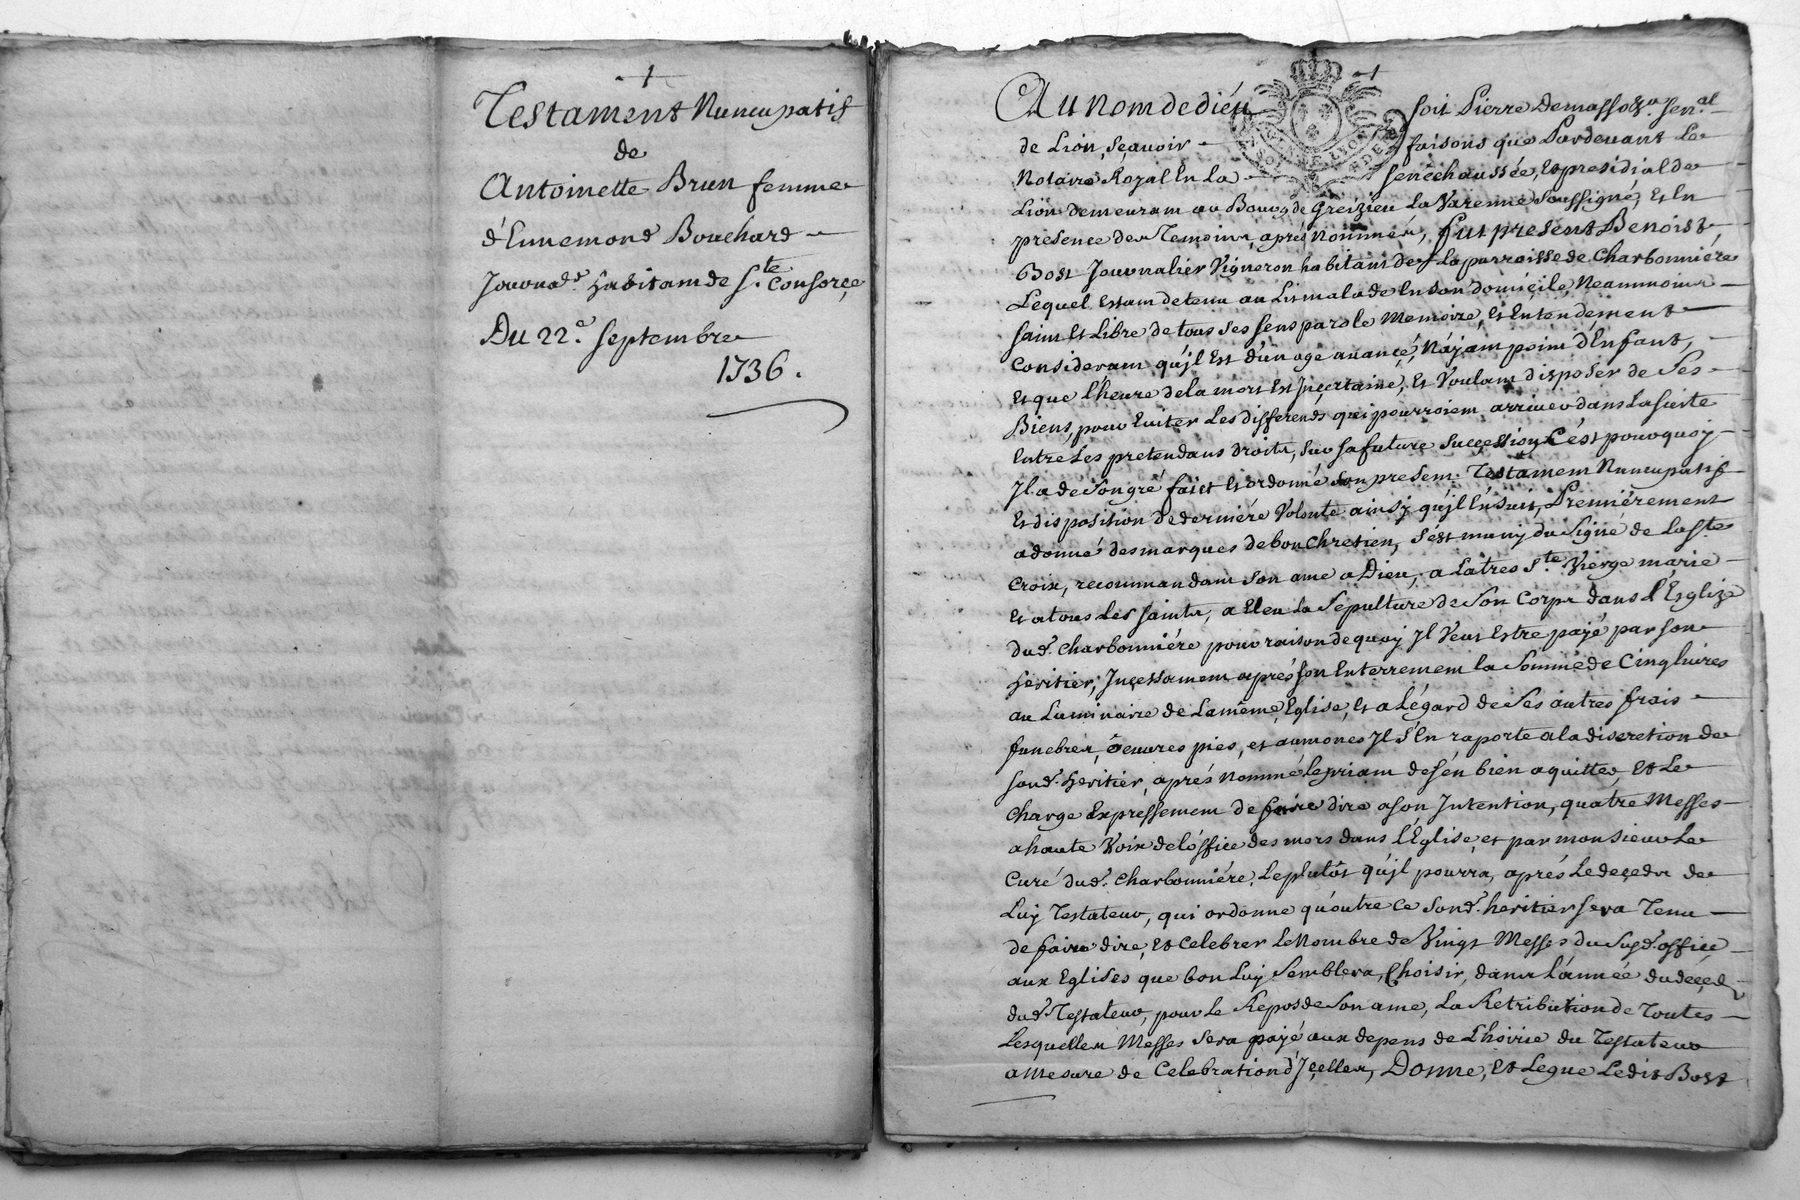 Testament Nuncupatif
de
Antoinette Brun femme
d'Ennemond Bouchard
Journa.er habitam de S.te Consorçe
Du 22.e Septembre
1736.
Au nom de diéu soit Pierre Demasso sen.al
de Lion, sçavoir faisons que Pardevant Le
Notaire Royal En La senéchaussée, Et presidial de
Lion demeuram au Bourg de Greizieu La Varenne Soussigné, Et En
presence des Temoins, aprés Nommés, fut present Benoist
Bost Journalier Vigneron habitant de La parroisse de Charbonniére
Lequel Estam detenu au Lit malade En son domicile, Neammoins
saim Et Libre de tous ses sens parole Memoire, Et Entendement
Consideram qu'jl Est d'un age avancé, N'ajam poim d'Enfant,
Et que L'heure de la mort Est Jnçertaine, Et Voulam disposér de Ses
Biens, pour Eviter Les differends qui pourroiem arriver dans La suitte
Entre Les pretendans droits, sur sa future Succession C'est pourquoy
Jl a de son gré fait Et ordonné son presem Testamem Nuncupatif
Et disposition de derniére Volonté ainsy qu'jl En suit, Premiérement
a donné des marques de bon Chretien, s'est muny du Signe de La S.te
Croix, recommandam son ame a Dieu, a La tres S.te Vierge marie
Et a tous Les saints, a Eleu La Sepulture de Son Corps dans l'Esglize
dud. Charbonniére pour raison de quoy Jl Veut Estre payé par son
Héritier, Jnçessamem aprés son Enterremem la Somme de Cinq livres
au Luminaire de La même Eglise, Et a L'égard de Ses autres frais
funebres, oeuvres pies, et aumones Jl s'En raporte a la discretion de
sond. Heritier, aprés Nommé Le priam de s'en bien aquitter, Et Le
Charge Expressemem de faire dire a son Jntention, quatre Messes
a haute Voix de l'office des mors dans L'Eglise, et par monsieur Le
Curé dud. Charbonniére, Le plutôt qu'jl pourra, aprés Le deçeds de
Luy Testateur, qui ordonne qu'outre Ce Sond. heritier sera Tenu
de faire dire, Et Celebrer Le Nombre de Vingt Messes du Susd. office
aux Eglises que bon Luy Semblera, Choisir, dans L'année du deçeds
dud. Testateur, pour Le Repos de Son ame, La Retribution de Toutes
Lesquelles Messes Sera payé aux depens de L'hoirie du Testateur
a Mesure de Celebration d'Jçelles, Donne, Et Legue Ledit Bost